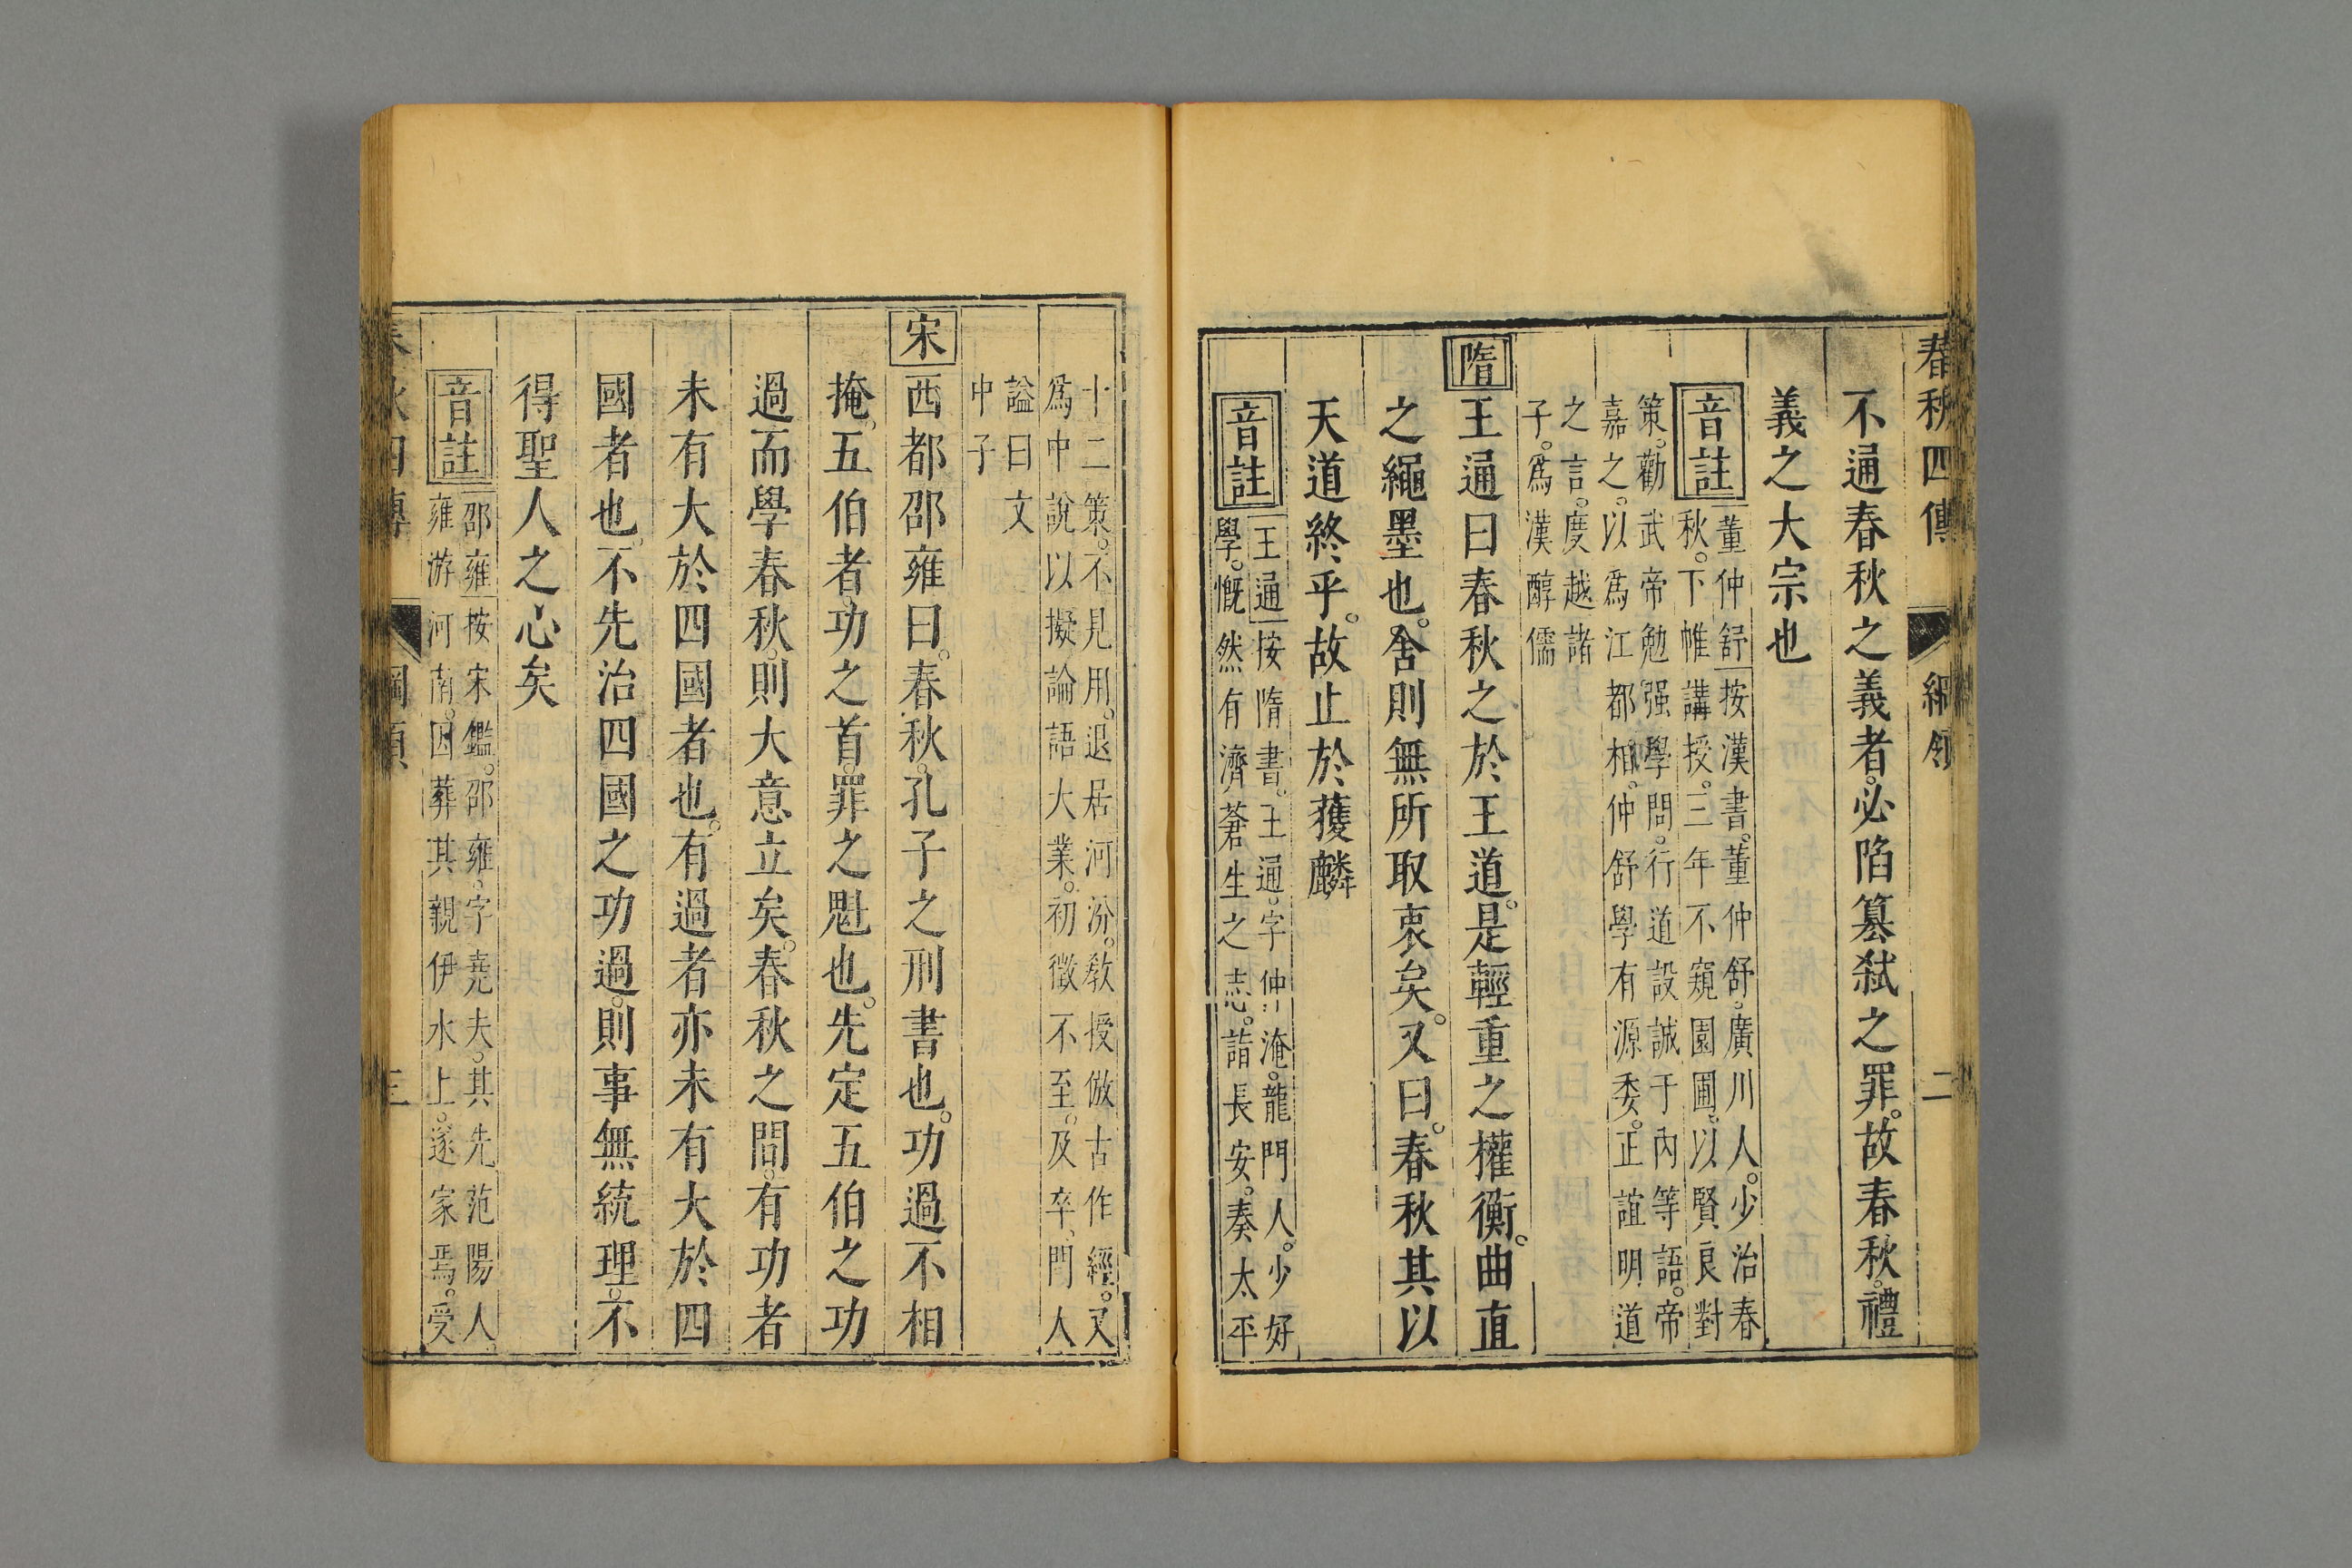 春秋四傳 綱領 二
不通春秋之義者。必陷篡弑之罪。故春秋。禮
義之大宗也
音註 董仲舒 按漢書。董仲舒。廣川人。少治春
秋。下帷講授。三年不窺園圃。以賢良對
策。勸武帝勉强學問。行道設誠于內等語。帝
嘉之。以爲江都相。仲舒學有源委。正誼明道
之言。度越諸
子。爲漢醇儒
隋 王通曰春秋之於王道。是輕重之權衡。曲直
之繩墨也。舍則無所取衷矣。又曰。春秋其以
天道終乎。故止於獲麟
音註 王通 按隋書。王通。字仲淹。龍門人。少好
學。慨然有濟蒼生之志。詣長安。奏太平
十二策。不見用。退居河汾。敎授倣古作經。又
爲中說以擬論語大業。初徵不至。及卒、門人
謚曰文
中子
宋 西都邵雍曰。春秋。孔子之刑書也。功過不相
掩。五伯者。功之首。罪之魁也。先定五伯之功
過而學春秋。則大意立矣。春秋之間。有功者
未有大於四國者也。有過者亦未有大於四
國者也。不先治四國之功過。則事無統理。不
得聖人之心矣
音註 邵雍 按宋鑑。邵雍。字堯夫。其先范陽人
雍游河南。因葬其親伊水上。遂家焉。受
秋四傳 綱領 三